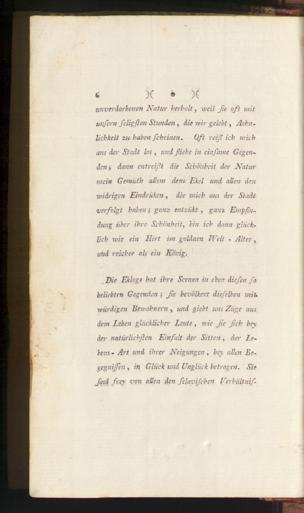 6 )( * )(
unverdorbenen Natur herholt, weil sie oft mit
unsern seligsten Stunden, die wir gelebt, Aehn-
lichkeit zu haben scheinen. Oft reiß ich mich
aus der Stadt los, und fliehe in einsame Gegen-
den; dann entreißt die Schönheit der Natur
mein Gemüth allem dem Ekel und allen den
widrigen Eindrüken, die mich aus der Stadt
verfolgt haben; ganz entzükt, ganz Empfin-
dung über ihre Schönheit, bin ich dann glück-
lich wie ein Hirt im goldnen Welt-Alter,
und reicher als ein König.
Die Ekloge hat ihre Scenen in eben diesen so
beliebten Gegenden; sie bevölkert dieselben mit
würdigen Bewohnern, und giebt uns Züge aus
dem Leben glücklicher Leute, wie sie sich bey
der natürlichsten Einfalt der Sitten, der Le-
bens-Art und ihrer Neigungen, bey allen Be-
gegnissen, in Glück und Unglück betragen. Sie
sind frey von allen den sclavischen Verhältnis-